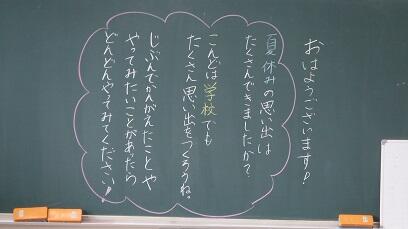 おはようございます!
夏休みの思い出は
たくさんできましたか?
こんどは学校でも
たくさん思い出をつくろうね。
じぶんでかんがえたことや
やってみたいことがあったら
どんどんやってみてください!